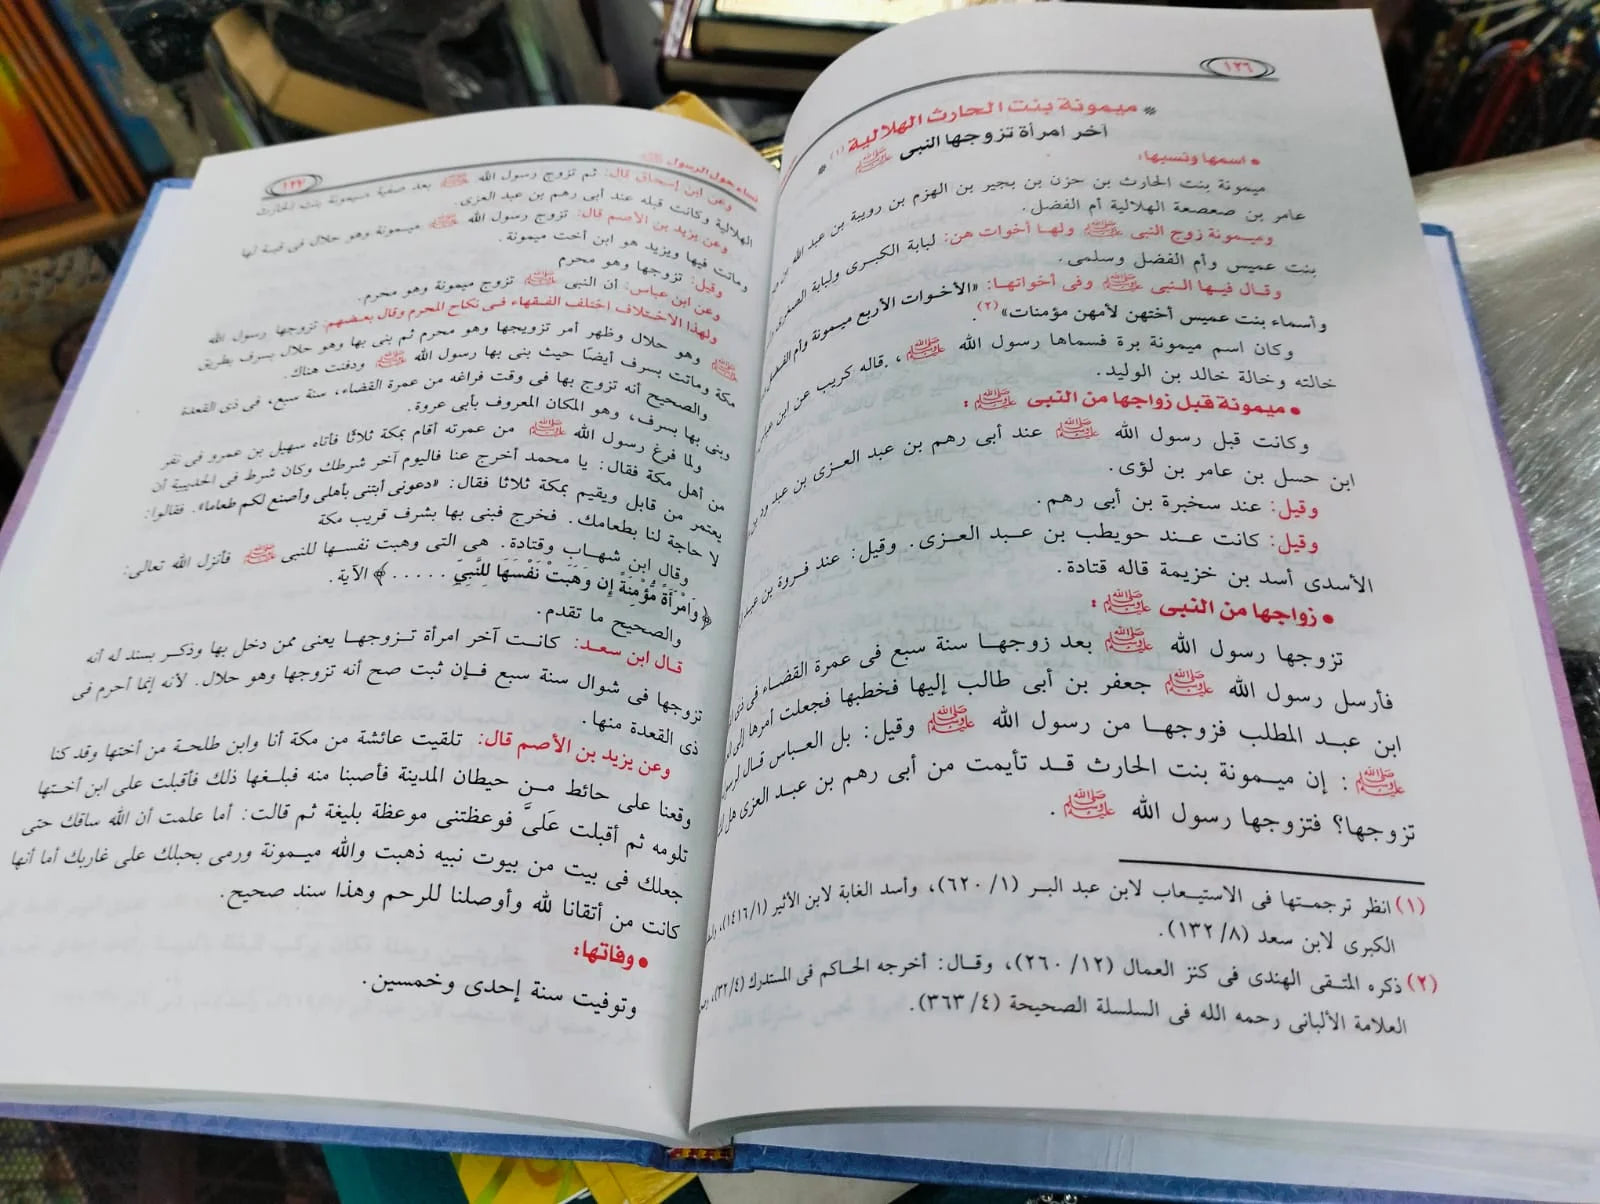 ١٢٦
* ميمونة بنت الحارث الهلالية (١)
آخر امرأة تزوجها النبى ﷺ *
• اسمها ونسبها:
ميمونة بنت الحارث بن حزن بن بجير بن الهزم بن رويبة بن عبد الله
عامر بن صعصعة الهلالية أم الفضل.
وميمونة زوج النبى ﷺ ولها أخوات هن: لبابة الكبرى ولبابة الصغرى
بنت عميس وأم الفضل وسلمى.
وقال فيها النبى ﷺ وفى أخواتها: «الأخوات الأربع ميمونة وأم الفضل
وأسماء بنت عميس أختهن لأمهن مؤمنات» (٢)
وكان اسم ميمونة برة فسماها رسول الله ﷺ، قاله كريب عن ابن عباس
خالته وخالة خالد بن الوليد.
• ميمونة قبل زواجها من النبى ﷺ:
وكانت قبل رسول الله ﷺ عند أبى رهم بن عبد العزى بن عبد ود بن
ابن حسل بن عامر بن لؤى.
وقيل: عند سخبرة بن أبى رهم.
وقيل: كانت عند حويطب بن عبد العزى. وقيل: عند فروة بن
الأسدى أسد بن خزيمة قاله قتادة.
• زواجها من النبى ﷺ:
تزوجها رسول الله ﷺ بعد زوجها سنة سبع فى عمرة القضاء فى
فأرسل رسول الله ﷺ جعفر بن أبى طالب إليها فخطبها فجعلت أمرها إلى
ابن عبد المطلب فزوجها من رسول الله ﷺ وقيل: بل العباس قال
ﷺ: إن ميمونة بنت الحارث قد تأيمت من أبى رهم بن عبد العزى هل
تزوجها؟ فتزوجها رسول الله ﷺ.
(١) انظر ترجمتها فى الاستيعاب لابن عبد البر (١/ ٦٢٠)، وأسد الغابة لابن الأثير (١/ ١٤١٦)،
الكبرى لابن سعد (٨/ ١٣٢).
(٢) ذكره المتقى الهندى فى كنز العمال (١٢/ ٢٦٠)، وقال: أخرجه الحاكم فى المستدرك (٤/ ٣٢)،
العلامة الألبانى رحمه الله فى السلسلة الصحيحة (٤/ ٣٦٣).
نساء حول الرسول ﷺ
١٢٧
وعن ابن إسحاق قال: ثم تزوج رسول الله ﷺ بعد صفية ميمونة بنت الحارث
الهلالية وكانت قبله عند أبى رهم بن عبد العزى.
وعن يزيد بن الأصم قال: تزوج رسول الله ﷺ ميمونة وهو حلال فى قبة لها
وماتت فيها ويزيد هو ابن أخت ميمونة.
وقيل: تزوجها وهو محرم
وعن ابن عباس: إن النبى ﷺ تزوج ميمونة وهو محرم.
ولهذا الاختلاف اختلف الفقهاء فى نكاح المحرم وقال بعضهم: تزوجها رسول الله
ﷺ وهو حلال وظهر أمر تزويجها وهو محرم ثم بنى بها وهو حلال بسرف بطريق
مكة وماتت بسرف أيضًا حيث بنى بها رسول الله ﷺ ودفنت هناك.
والصحيح أنه تزوج بها فى وقت فراغه من عمرة القضاء، سنة سبع، فى ذى القعدة
وبنى بها بسرف، وهو المكان المعروف بأبى عروة.
ولما فرغ رسول الله ﷺ من عمرته أقام بمكة ثلاثًا فأتاه سهيل بن عمرو فى نفر
من أهل مكة فقال: يا محمد أخرج عنا فاليوم آخر شرطك وكان شرط فى الحديبية أن
يعتمر من قابل ويقيم بمكة ثلاثا فقال: «دعونى أبتنى بأهلى وأصنع لكم طعاما». فقالوا:
لا حاجة لنا بطعامك. فخرج فبنى بها بشرف قريب مكة
وقال ابن شهاب وقتادة. هى التى وهبت نفسها للنبى ﷺ فأنزل الله تعالى:
﴿وَامْرَأَةً مُّؤْمِنَةً إِن وَهَبَتْ نَفْسَهَا لِلنَّبِيِّ .....﴾ الآية.
والصحيح ما تقدم.
قال ابن سعد: كانت آخر امرأة تزوجها يعنى ممن دخل بها وذكر بسند له أنه
تزوجها فى شوال سنة سبع فإن ثبت صح أنه تزوجها وهو حلال. لأنه إنما أحرم فى
ذى القعدة منها.
وعن يزيد بن الأصم قال: تلقيت عائشة من مكة أنا وابن طلحة من أختها وقد كنا
وقعنا على حائط من حيطان المدينة فأصبنا منه فبلغها ذلك فأقبلت على ابن أختها
تلومه ثم أقبلت عَلَىَّ فوعظتنى موعظة بليغة ثم قالت: أما علمت أن الله ساقك حتى
جعلك فى بيت من بيوت نبيه ذهبت والله ميمونة ورمى بحبلك على غاربك أما أنها
كانت من أتقانا لله وأوصلنا للرحم وهذا سند صحيح.
• وفاتها:
وتوفيت سنة إحدى وخمسين.